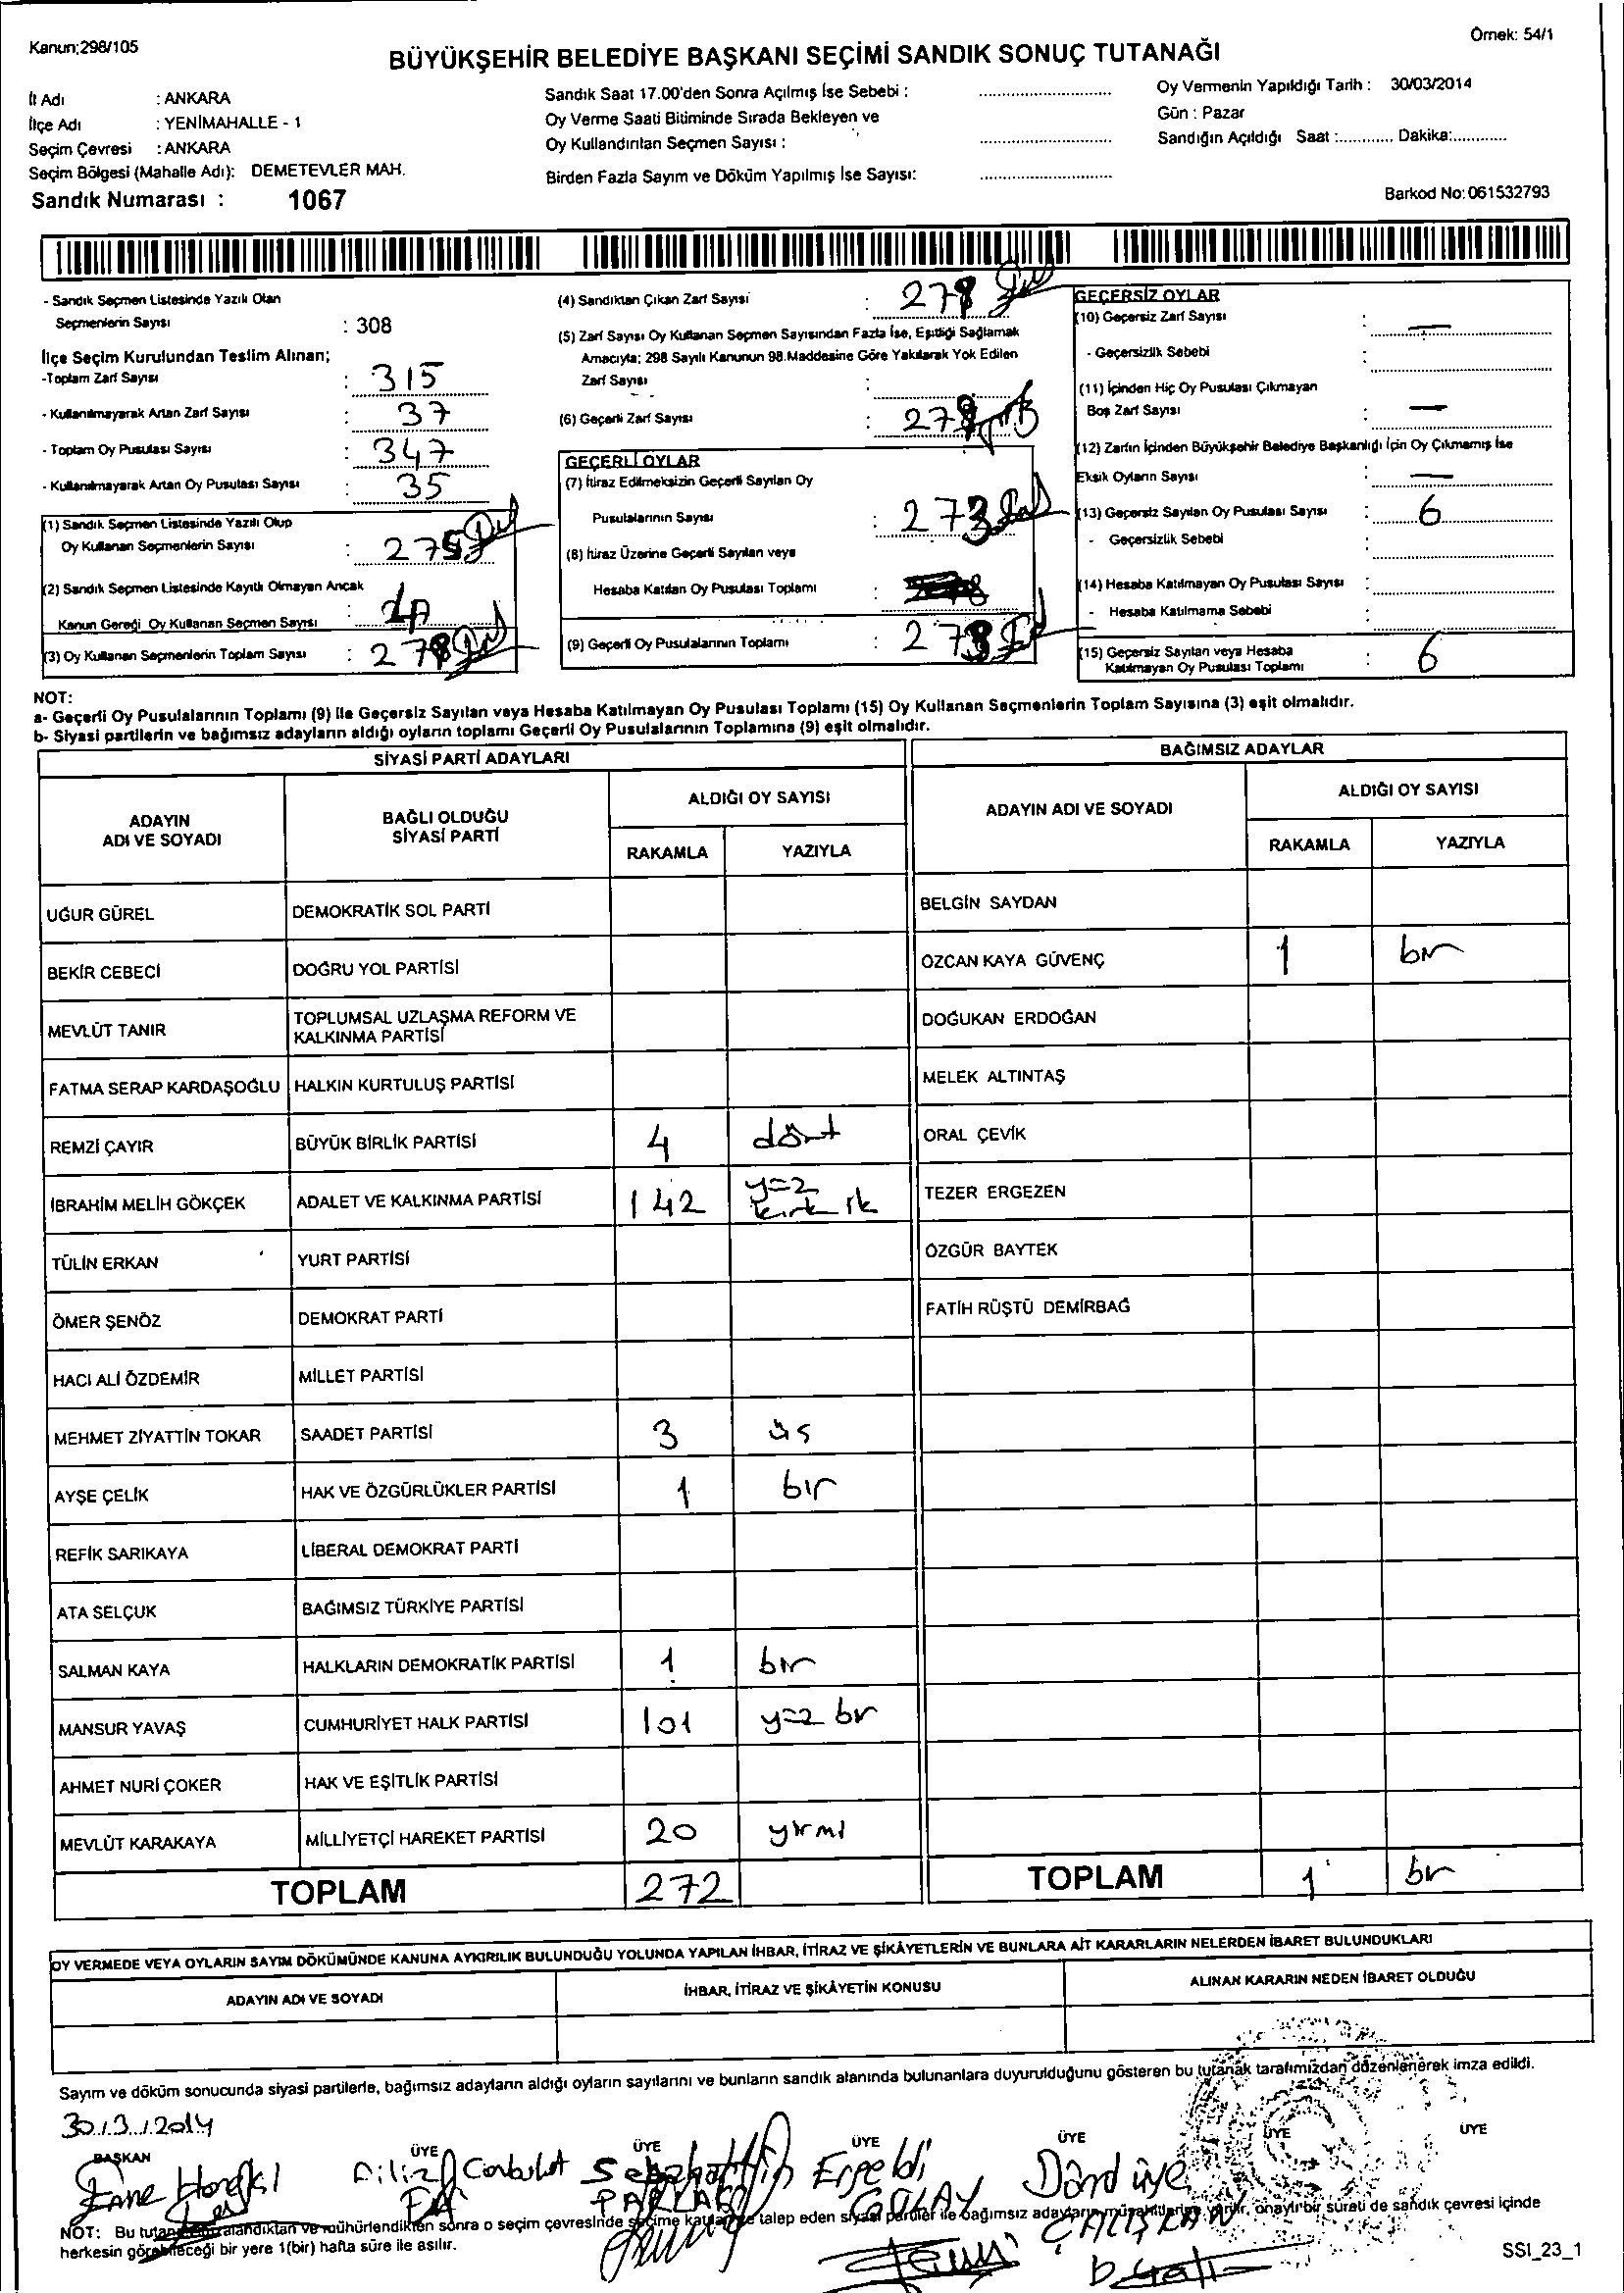 Kanun;298/105
Örnek: 54/1
BÜYÜKŞEHİR BELEDİYE BAŞKANI SEÇİMİ SANDIK SONUÇ TUTANAĞI
İl Adı : ANKARA
İlçe Adı : YENİMAHALLE - 1
Seçim Çevresi : ANKARA
Seçim Bölgesi (Mahalle Adı): DEMETEVLER MAH.
Sandık Numarası : 1067
Sandık Saat 17.00'den Sonra Açılmış İse Sebebi :
Oy Verme Saati Bitiminde Sırada Bekleyen ve
Oy Kullandırılan Seçmen Sayısı :
Birden Fazla Sayım ve Döküm Yapılmış İse Sayısı:
Oy Vermenin Yapıldığı Tarih : 30/03/2014
Gün : Pazar
Sandığın Açıldığı Saat :............ Dakika:............
Barkod No: 061532793
- Sandık Seçmen Listesinde Yazılı Olan
Seçmenlerin Sayısı : 308
İlçe Seçim Kurulundan Teslim Alınan;
-Toplam Zarf Sayısı : 315
- Kullanılmayarak Artan Zarf Sayısı : 37
- Toplam Oy Pusulası Sayısı : 347
- Kullanılmayarak Artan Oy Pusulası Sayısı : 35
(1) Sandık Seçmen Listesinde Yazılı Olup
Oy Kullanan Seçmenlerin Sayısı :
(2) Sandık Seçmen Listesinde Kayıtlı Olmayan Ancak
Kanun Gereği Oy Kullanan Seçmen Sayısı :
(3) Oy Kullanan Seçmenlerin Toplam Sayısı : 278
(4) Sandıktan Çıkan Zarf Sayısı : 278
(5) Zarf Sayısı Oy Kullanan Seçmen Sayısından Fazla İse, Eşitliği Sağlamak
Amacıyla; 298 Sayılı Kanunun 98.Maddesine Göre Yakılarak Yok Edilen
Zarf Sayısı :
(6) Geçerli Zarf Sayısı : 278
GEÇERLİ OYLAR
(7) İtiraz Edilmeksizin Geçerli Sayılan Oy
Pusulalarının Sayısı : 273
(8) İtiraz Üzerine Geçerli Sayılan veya
Hesaba Katılan Oy Pusulası Toplamı :
(9) Geçerli Oy Pusulalarının Toplamı : 273
GEÇERSİZ OYLAR
(10) Geçersiz Zarf Sayısı : —
- Geçersizlik Sebebi :
(11) İçinden Hiç Oy Pusulası Çıkmayan
Boş Zarf Sayısı : —
(12) Zarfın İçinden Büyükşehir Belediye Başkanlığı İçin Oy Çıkmamış İse
Eksik Oyların Sayısı : —
(13) Geçersiz Sayılan Oy Pusulası Sayısı : 6
- Geçersizlik Sebebi :
(14) Hesaba Katılmayan Oy Pusulası Sayısı :
- Hesaba Katılmama Sebebi :
(15) Geçersiz Sayılan veya Hesaba
Katılmayan Oy Pusulası Toplamı : 6
NOT:
a- Geçerli Oy Pusulalarının Toplamı (9) ile Geçersiz Sayılan veya Hesaba Katılmayan Oy Pusulası Toplamı (15) Oy Kullanan Seçmenlerin Toplam Sayısına (3) eşit olmalıdır.
b- Siyasi partilerin ve bağımsız adayların aldığı oyların toplamı Geçerli Oy Pusulalarının Toplamına (9) eşit olmalıdır.
SİYASİ PARTİ ADAYLARI
BAĞIMSIZ ADAYLAR
ADAYIN ADI VE SOYADI
BAĞLI OLDUĞU SİYASİ PARTİ
ALDIĞI OY SAYISI
RAKAMLA YAZIYLA
ADAYIN ADI VE SOYADI
ALDIĞI OY SAYISI
RAKAMLA YAZIYLA
UĞUR GÜREL DEMOKRATİK SOL PARTİ BELGİN SAYDAN
BEKİR CEBECİ DOĞRU YOL PARTİSİ ÖZCAN KAYA GÜVENÇ 1 bir
MEVLÜT TANIR TOPLUMSAL UZLAŞMA REFORM VE KALKINMA PARTİSİ DOĞUKAN ERDOĞAN
FATMA SERAP KARDAŞOĞLU HALKIN KURTULUŞ PARTİSİ MELEK ALTINTAŞ
REMZİ ÇAYIR BÜYÜK BİRLİK PARTİSİ 4 dört ORAL ÇEVİK
İBRAHİM MELİH GÖKÇEK ADALET VE KALKINMA PARTİSİ 142 yüz kırk ik TEZER ERGEZEN
TÜLİN ERKAN YURT PARTİSİ ÖZGÜR BAYTEK
ÖMER ŞENÖZ DEMOKRAT PARTİ FATİH RÜŞTÜ DEMİRBAĞ
HACI ALİ ÖZDEMİR MİLLET PARTİSİ
MEHMET ZİYATTİN TOKAR SAADET PARTİSİ 3 üç
AYŞE ÇELİK HAK VE ÖZGÜRLÜKLER PARTİSİ 1 bir
REFİK SARIKAYA LİBERAL DEMOKRAT PARTİ
ATA SELÇUK BAĞIMSIZ TÜRKİYE PARTİSİ
SALMAN KAYA HALKLARIN DEMOKRATİK PARTİSİ 1 bir
MANSUR YAVAŞ CUMHURİYET HALK PARTİSİ 101 yüz bir
AHMET NURİ ÇOKER HAK VE EŞİTLİK PARTİSİ
MEVLÜT KARAKAYA MİLLİYETÇİ HAREKET PARTİSİ 20 yirmi
TOPLAM 272 TOPLAM 1 bir
OY VERMEDE VEYA OYLARIN SAYIM DÖKÜMÜNDE KANUNA AYKIRILIK BULUNDUĞU YOLUNDA YAPILAN İHBAR, İTİRAZ VE ŞİKÂYETLERİN VE BUNLARA AİT KARARLARIN NELERDEN İBARET BULUNDUKLARI
ADAYIN ADI VE SOYADI İHBAR, İTİRAZ VE ŞİKÂYETİN KONUSU ALINAN KARARIN NEDEN İBARET OLDUĞU
Sayım ve döküm sonucunda siyasi partilerle, bağımsız adayların aldığı oyların sayılarını ve bunların sandık alanında bulunanlara duyurulduğunu gösteren bu tutanak tarafımızdan düzenlenerek imza edildi.
30/3/2014
BAŞKAN ÜYE ÜYE ÜYE ÜYE ÜYE ÜYE
PARLAK
ÇALIŞKAN
NOT: Bu mühürlendikten sonra o seçim çevresinde seçime talep eden siyasi partiler ile bağımsız adayların onaylı bir sureti de sandık çevresi içinde
herkesin görebileceği bir yere 1(bir) hafta süre ile asılır.
SSI_23_1